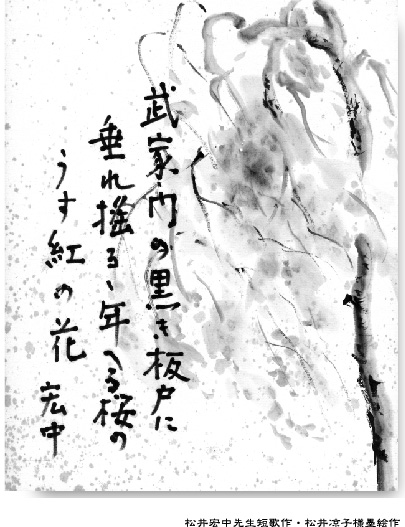 武家門の黒き板戸に
垂れ揺るゝ年へる桜の
うす紅の花 宏中
松井宏中先生短歌作・松井凉子様墨絵作